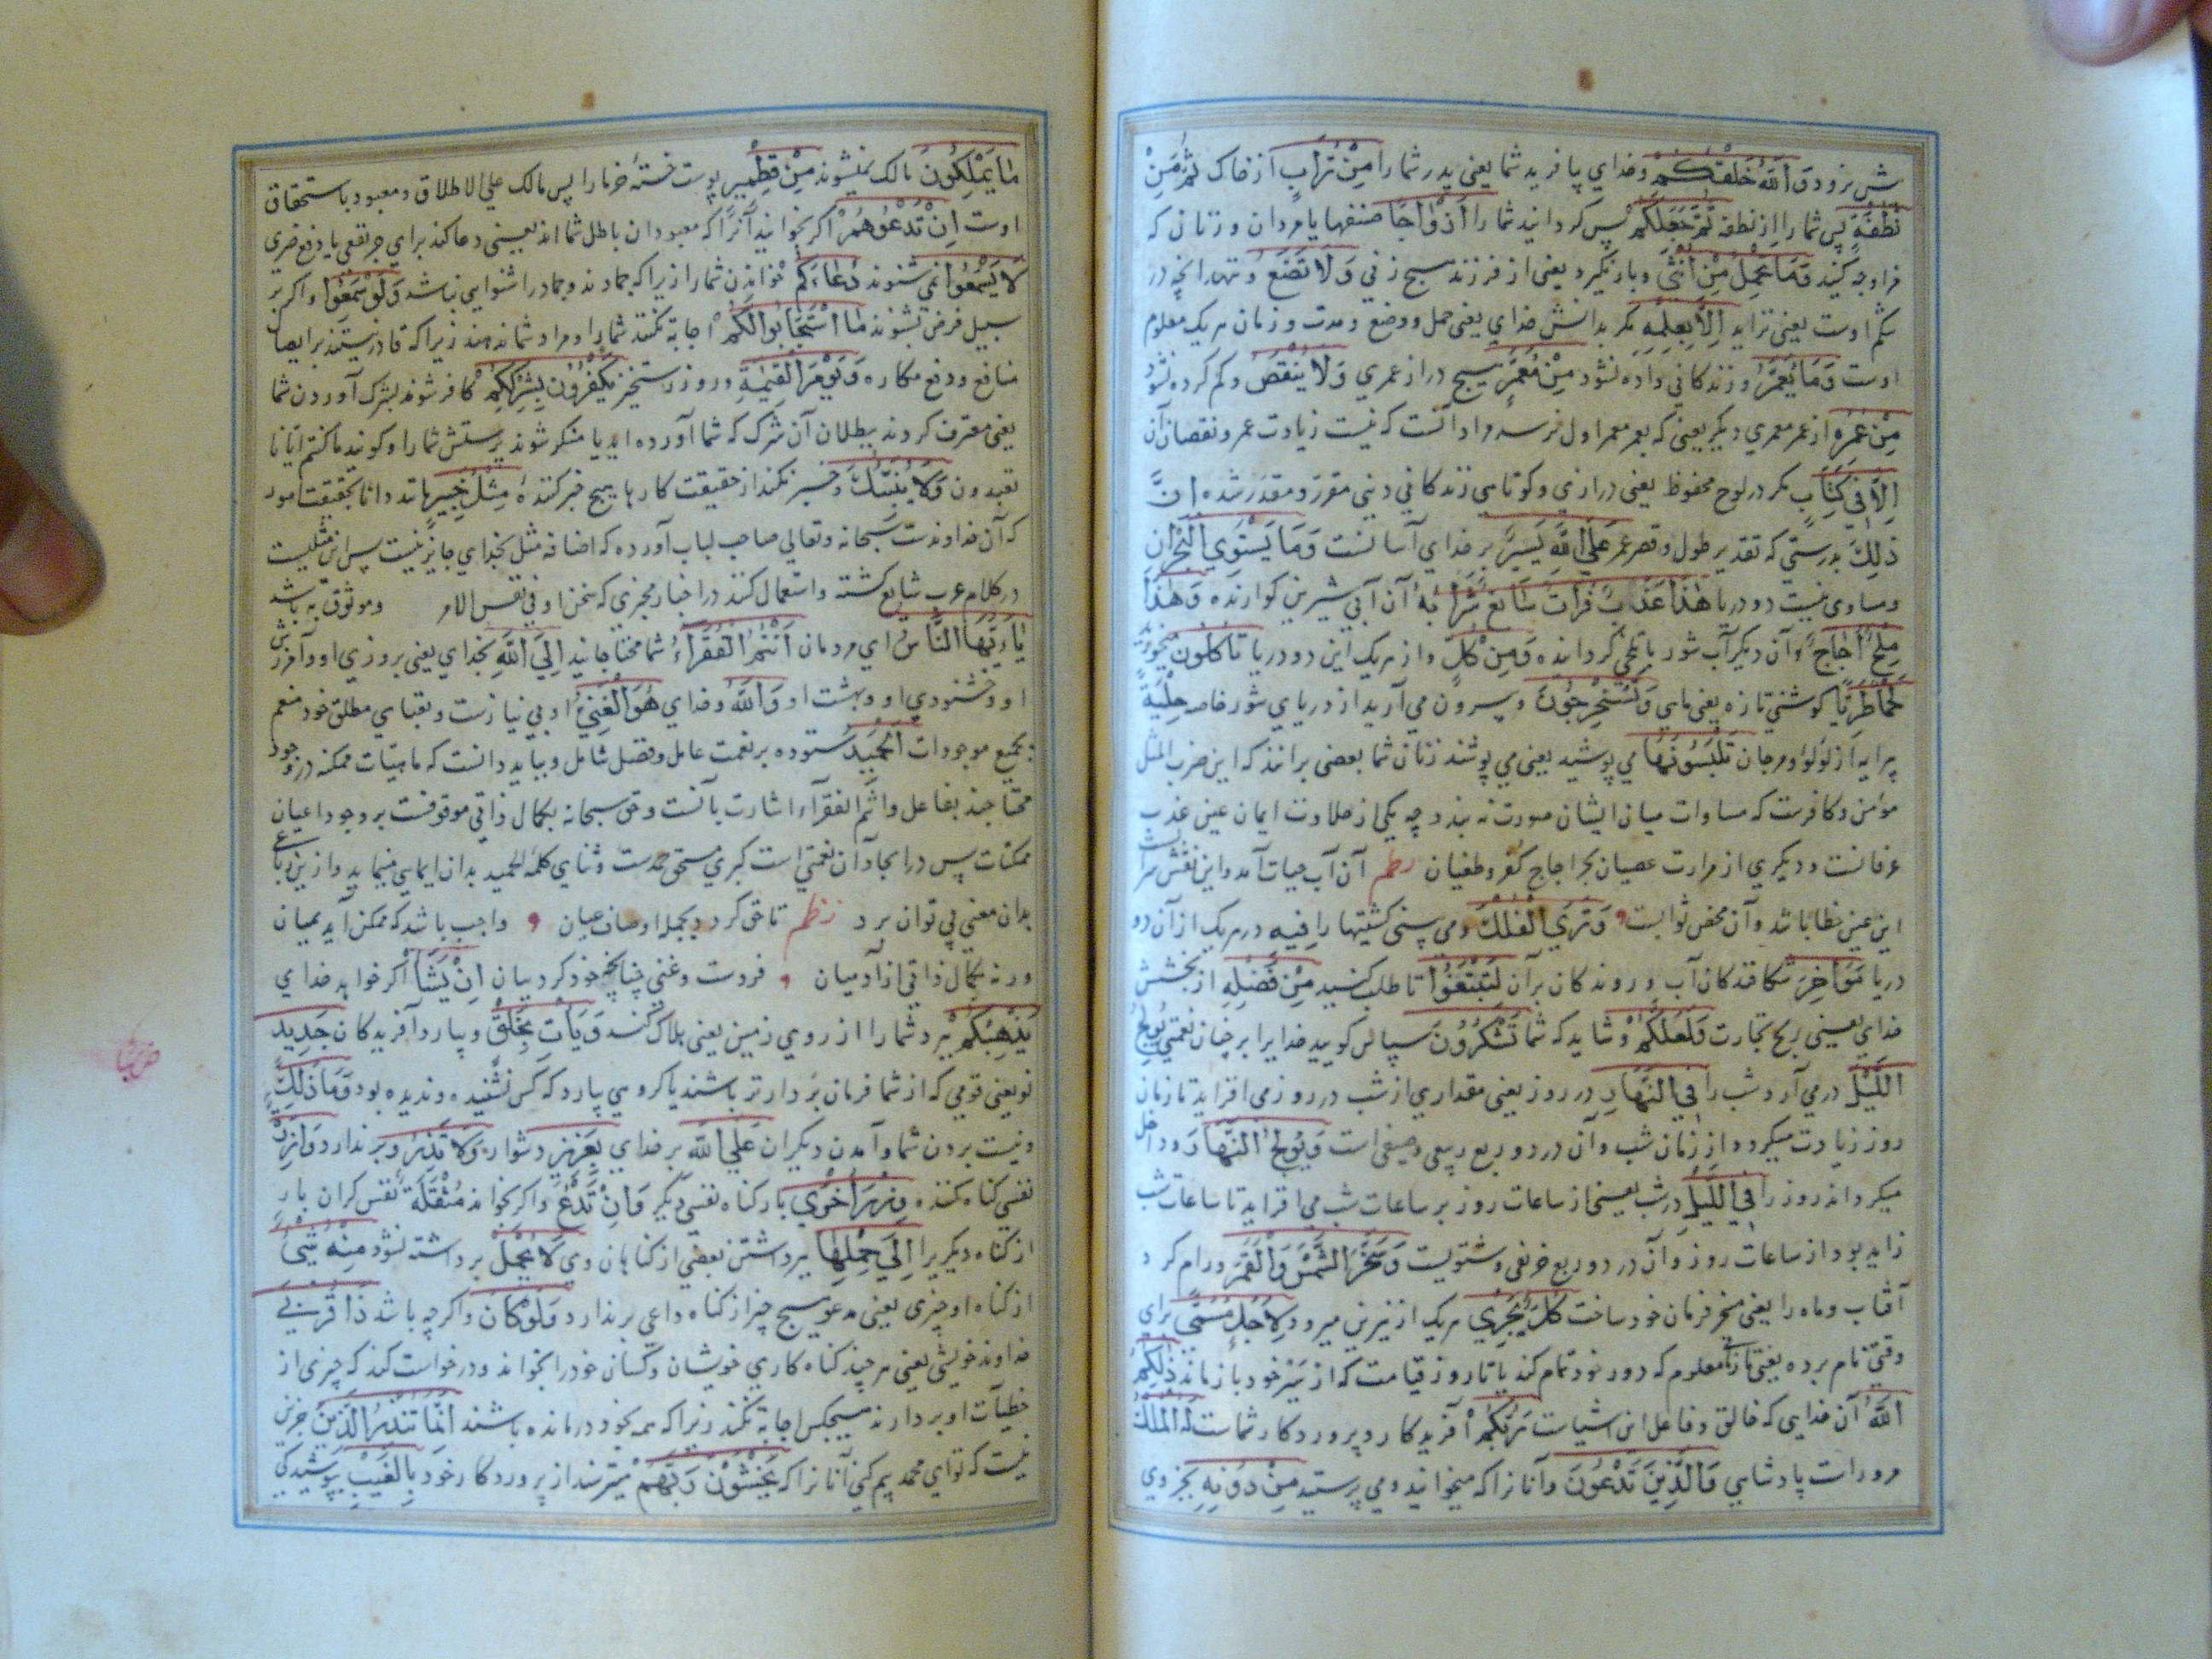 وَاللَّهُ خَلَقَكُمْ وخداي بيافريد شما يعني پدر شما را مِنْ تُرَابٍ از خاک ثُمَّ مِنْ
نُطْفَةٍ پس شما را از نطفه ثُمَّ جَعَلَكُمْ پس کردانيد شما را أَزْوَاجًا صنفها يا مردان و زنانی که
مزاوجه کنيد وَمَا تَحْمِلُ مِنْ أُنْثَى وبار نکيرد يعنی از فرزند هيچ زنی وَلَا تَضَعُ و ننهد انچه در
شکم اوست يعنی نزايد إِلَّا بِعِلْمِهِ مکر بدانش خدای يعنی حمل و وضع و مدت و زمان هريک معلوم
اوست وَمَا يُعَمَّرُ و زندکانی داده نشود مِنْ مُعَمَّرٍ هيچ دراز عمری وَلَا يُنْقَصُ وکم کرده نشود
مِنْ عُمُرِهِ از عمر معمری ديکر يعنی که بعمر معمر اول نرسد مراد آنست که نيست زيادت عمر و نقصان آن
إِلَّا فِي كِتَابٍ مکر در لوح محفوظ يعنی درازی وکوتاهی زندکانی دينی مقرر و مقدر شده إِنَّ
ذَلِكَ بدرستی که تقدير طول و قصر عمر عَلَى اللَّهِ يَسِيرٌ بر خدای آسانست وَمَا يَسْتَوِي الْبَحْرَانِ
ومساوی نيست دو دريا هَذَا عَذْبٌ فُرَاتٌ سَائِغٌ شَرَابُهُ آن آبی شيرين کوارنده وَهَذَا
مِلْحٌ أُجَاجٌ وآن ديکر آب شور با تلخی کردانيده وَمِنْ كُلٍّ واز هريک اين دو دريا تَأْكُلُونَ ميخوريد
لَحْمًا طَرِيًّا کوشتی تازه يعنی ماهی وَتَسْتَخْرِجُونَ وبيرون می آريد از دريای شور خاصه حِلْيَةً
پيرايه از لؤلؤ و مرجان تَلْبَسُونَهَا می پوشيد يعنی می پوشند زنان شما بعضی برانند که اين ضرب المثل
مؤمن وکافرست که مساوات ميان ايشان صورت نه بندد چه يکی از حلاوت ايمان عين عذب
عرفانست و ديکری از مرارت عصيان بحر اجاج کفر و طغيان نظم آن آب حيات آمد واين نقش سراب
اين عين خطا باشد وآن محض ثوابست وَتَرَى الْفُلْكَ ومی بينی کشتيها را فِيهِ در هريک از آن دو
دريا مَوَاخِرَ شکافندکان آب و روندکان بر آن لِتَبْتَغُوا تا طلب کنيد مِنْ فَضْلِهِ از بخشش
خدای يعنی ربح تجارت وَلَعَلَّكُمْ وشايد که شما تَشْكُرُونَ سپاس کوييد خدايرا بر چنان نعمتی يُولِجُ
اللَّيْلَ درمی آرد شب را فِي النَّهَارِ در روز يعنی مقداری از شب در روز می افزايد تا زمان
روز زيادت ميکردد از زمان شب وآن در دو ربع ربيعی و صيفی است وَيُولِجُ النَّهَارَ ودا خل
ميکرداند روز را فِي اللَّيْلِ در شب يعنی از ساعات روز بر ساعات شب می افزايد تا ساعات شب
زايد بود از ساعات روز وآن در دو ربع خريفی و شتويست وَسَخَّرَ الشَّمْسَ وَالْقَمَرَ ورام کرد
آفتاب وماه را يعنی مسخر فرمان خود ساخت كُلٌّ يَجْرِي هريک از نيرين ميرود لِأَجَلٍ مُسَمًّى برای
وقتی نام برده يعنی تا زمانی معلوم که دور خود تمام کند يا تا روز قيامت که از سير خود باز ماند ذَلِكُمُ
اللَّهُ آن خدايی که خالق و فاعل اين اشياست رَبُّكُمْ آفريدکار و پروردکار شماست لَهُ الْمُلْكُ
مرورات پادشاهی وَالَّذِينَ تَدْعُونَ وآنانرا که ميخوانيد ومی پرستيد مِنْ دُونِهِ بجز وی
مَا يَمْلِكُونَ مالک نميشوند مِنْ قِطْمِيرٍ پوست خستهٔ خرما را پس مالک علی الاطلاق و معبود باستحقاق
اوست إِنْ تَدْعُوهُمْ اکر بخوانيد آنرا که معبودان باطل شمااند يعنی دعا کنيد برای جر نفعی يا دفع ضری
لَا يَسْمَعُوا نمی شنوند دُعَاءَكُمْ خواندن شما را زيراکه جمادند وجماد را شنوايی نباشد وَلَوْ سَمِعُوا واکر بر
سبيل فرض بشنوند مَا اسْتَجَابُوا لَكُمْ اجابة نکنند شما را ومراد شما ندهند زيرا که قادر نيستند بر ايصال
منافع ودفع مکاره وَيَوْمَ الْقِيَمَةِ وروز رستخيز يَكْفُرُونَ بِشِرْكِكُمْ کافر شوند بشرک آوردن شما
يعنی معترف کردند ببطلان آن شرک که شما آورده ايد يا منکر شوند پرستش شما را وکويند ما کنتم ايانا
تعبدون وَلَا يُنَبِّئُكَ وخبر نکند از حقيقت کارها هيچ خبر کنندهٔ مِثْلُ خَبِيرٍ مانند دانا بحقيقت امور
که آن خداوندست سبحانه وتعالی صاحب لباب آورده که اضافه مثل بخدای جايز نيست پس اين مثليست
در کلام عرب شايع کشته واستعمال کنند در اخبار مخبری که سخن او فی نفس الامر وموثوق به باشد
يَا أَيُّهَا النَّاسُ ای مردمان أَنْتُمُ الْفُقَرَاءُ شما محتاجانيد إِلَى اللَّهِ بخدای يعنی بروزی او وآمرزش
او وخشنودی او وبهشت او وَاللَّهُ وخدای هُوَ الْغَنِيُّ او بی نيازست وبغنای مطلق خود منعم
بجميع موجودات الْحَمِيدُ ستوده بر نعمت عامل وفضل شامل وببايد دانست که ماهيات ممکنه در وجود
محتاجند بفاعل وانتم الفقرآء اشارت بآنست وحق سبحانه بکمال ذاتی موقوفست بر وجود اعيان
ممکنات پس در ايجاد آن نعمتی است کبری مستحق حمدست وثنای کلمهٔ الحميد بدان ايمايی مينمايد وازين رباعی
بدان معنی پی توان برد نظم تا حق کردد بجمله اوصاف عيان واجب باشد که ممکن آيد بميان
ورنه بکمال ذاتی از آدميان فردست وغنی چنانچه خود کرد بيان إِنْ يَشَأْ اکر خواهد خدای
يُذْهِبْكُمْ ببرد شما را از روی زمين يعنی هلاک کند وَيَأْتِ بِخَلْقٍ وبيارد آفريدکان جَدِيدٍ
نو يعنی قومی که از شما فرمان بردارتر باشند يا کروهی بيارد که کس نشنيده ونديده بود وَمَا ذَلِكَ
ونيست بردن شما وآمدن ديکران عَلَى اللَّهِ بر خدای بِعَزِيزٍ دشوار وَلَا تَزِرُ وبر ندارد وَازِرَةٌ
نفس کناه کننده وِزْرَ أُخْرَى بار کناه نفسی ديکر وَإِنْ تَدْعُ واکر بخواند مُثْقَلَةٌ نفس کران بار
از کناه ديکريرا إِلَى حِمْلِهَا ببرداشتن بعضی از کناهان وی لَا يُحْمَلْ برداشته نشود مِنْهُ شَيْءٌ
از کناه او چيزی يعنی مدعو هيچ چيز از کناه داعی بر ندارد وَلَوْ كَانَ واکرچه باشد ذَا قُرْبَى
خداوند خويشی يعنی هر چند کناه کاری خويشان وکسان خود را بخواند ودرخواست کند که چيزی از
خطيآت او بردارند هيچکس اجابة نکند زيرا که همه بخود درمانده باشند إِنَّمَا تُنْذِرُ الَّذِينَ جزين
نيست که تو ای محمد بيم کنی آنانرا که يَخْشَوْنَ رَبَّهُمْ ميترسند از پروردکار خود بِالْغَيْبِ پوشيدکی